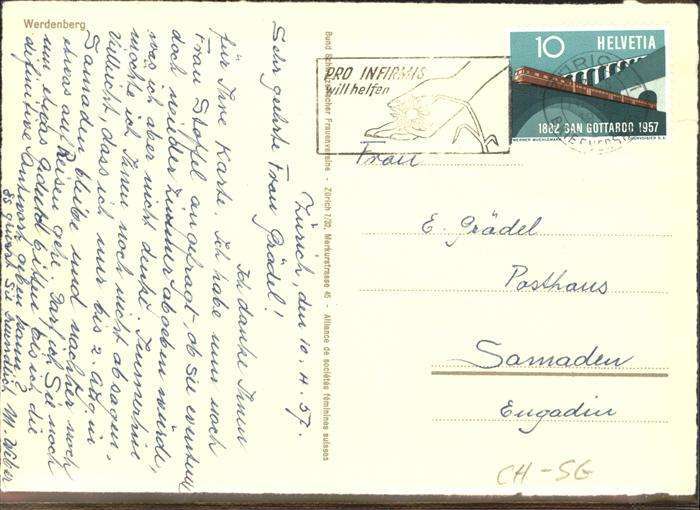 Werdenberg
Zürich, den 10. 4. 57.
Sehr geehrte Frau Grädel!
Ich danke Ihnen
für Ihre Karte. Ich habe nun noch
Frau Stoffel angefragt, ob sie eventuell
doch wieder Zimmer abgeben würde,
was ich aber nicht denke. Immerhin
möchte ich Ihnen noch nicht absagen.
Vielleicht, dass ich nur bis 2. Aug. in
Samaden bleibe und nachher noch
etwas auf Reisen gehe. Darf ich Sie noch
um etwas Geduld bitten bis ich die
definitive Antwort geben kann?
Es grüsst Sie freundlich M. Weber
Bund Schweizerischer Frauenvereine - Zürich 7/32, Merkurstrasse 45 - Alliance de sociétés féminines suisses
PRO INFIRMIS
will helfen
10 HELVETIA
1882 SAN GOTTARDO 1957
Frau
E. Grädel
Posthaus
Samaden
Engadin
CH-SG